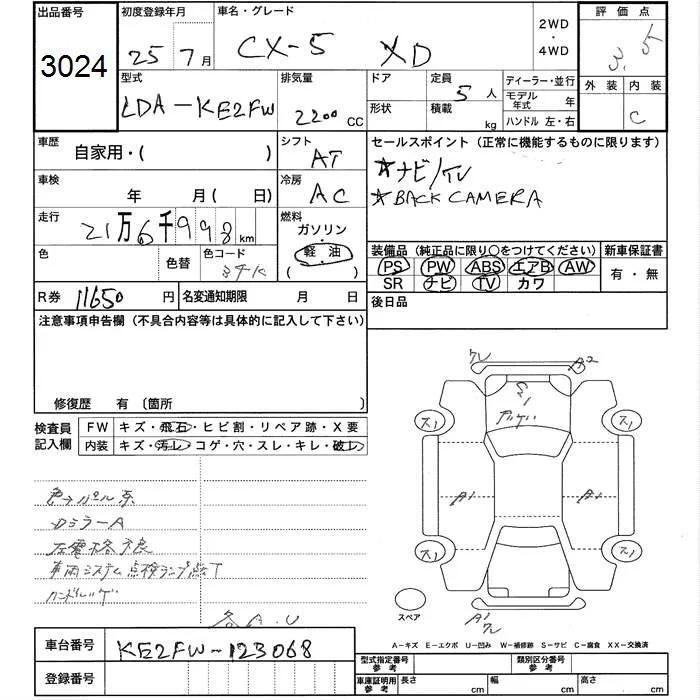 出品番号
3024
初度登録年月
25 7月
車名・グレード
CX-5 XD
2WD
・
4WD
評価点
3.5
外装 内装
C
型式
LDA-KE2FW
排気量
2200 CC
ドア
形状
定員
5人
積載
kg
ディーラー・並行
モデル年式 年
ハンドル 左・右
車歴
自家用・( )
シフト
AT
車検
年 月( 日)
冷房
AC
走行
21万6千998km
燃料
ガソリン
・
軽油
( )
色
色替
色コード
R券 11650円
名変通知期限 月 日
セールスポイント(正常に機能するものに限ります)
☆ナビ/TV
☆BACK CAMERA
装備品(純正品に限り○をつけてください)
PS PW ABS エアB AW
SR ナビ TV カワ
新車保証書
有・無
後日品
注意事項申告欄(不具合内容等は具体的に記入して下さい)
修復歴 有 〔箇所 〕
検査員記入欄
FW キズ・飛石・ヒビ割・リペア跡・X要
内装 キズ・汚レ・コゲ・穴・スレ・キレ・破レ
DミラーA
車両システム点検ランプ点灯
各A.U
車台番号 KE2FW-123068
登録番号
A2
ス1
ス1
A1
A1
ス1
ス1
スペア
A-キズ E-エクボ U-凹み W-補修跡 S-サビ C-腐食 XX-交換済
型式指定番号参考
類別区分番号参考
車庫証明用参考
長さ cm
幅 cm
高さ cm